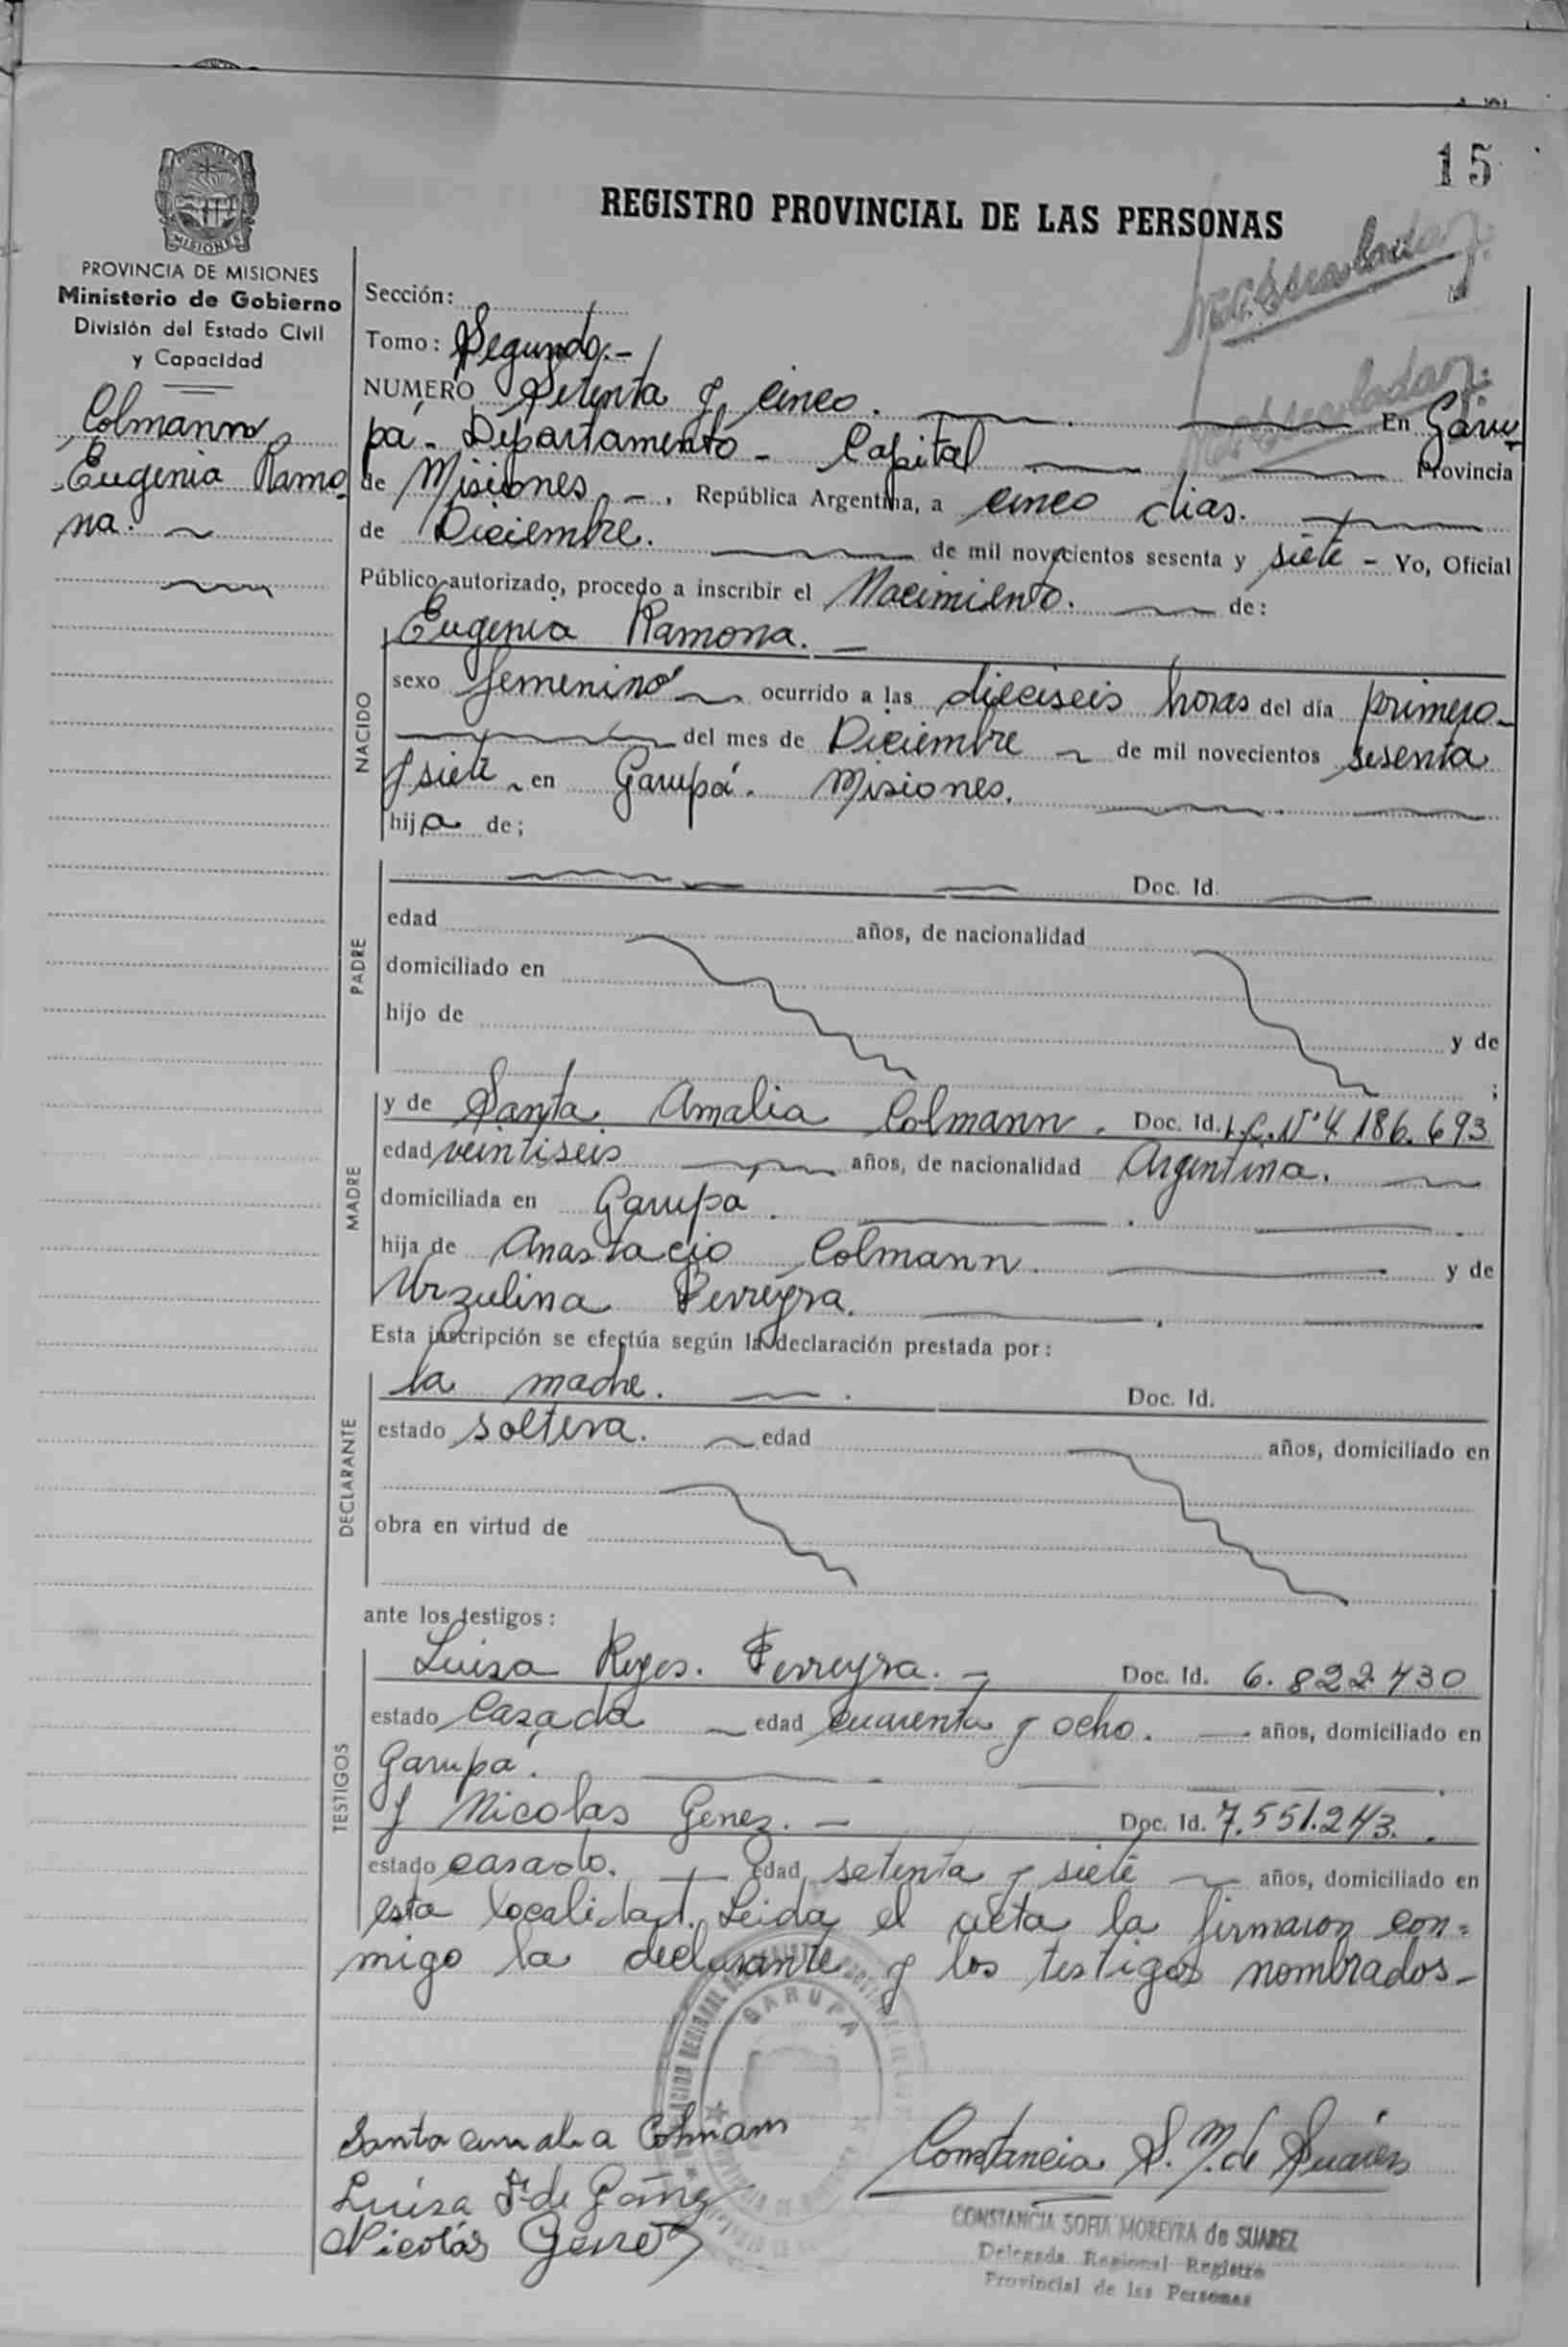 15
REGISTRO PROVINCIAL DE LAS PERSONAS
MISIONES
PROVINCIA DE MISIONES
Ministerio de Gobierno
División del Estado Civil
y Capacidad
Colmann
Eugenia Ramo-
na.
Sección:
Tomo: Segundo.-
NUMERO Setenta y cinco. En Garu-
pá - Departamento - Capital Provincia
de Misiones - , República Argentina, a cinco dias.
de Diciembre. de mil novecientos sesenta y siete - Yo, Oficial
Público autorizado, procedo a inscribir el Nacimiento. de:
NACIDO
Eugenia Ramona. -
sexo femenino ocurrido a las dieciseis horas del día primero -
del mes de Diciembre de mil novecientos sesenta
y siete en Garupá. Misiones.
hija de;
PADRE
Doc. Id.
edad años, de nacionalidad
domiciliado en
hijo de y de
;
MADRE
y de Santa Amalia Colmann. Doc. Id. L.C. Nº 4.186.693
edad veintiseis años, de nacionalidad Argentina.
domiciliada en Garupá.
hija de Anastacio Colmann. y de
Urzulina Ferreyra.
Esta inscripción se efectúa según la declaración prestada por:
DECLARANTE
la madre. Doc. Id.
estado soltera. edad años, domiciliado en
obra en virtud de
ante los testigos:
TESTIGOS
Luisa Reyes. Ferreyra. - Doc. Id. 6.822.430
estado Casada edad cuarenta y ocho. años, domiciliado en
Garupá.
y Nicolas Genez. - Doc. Id. 7.551.243.
estado casado. edad setenta y siete años, domiciliado en
esta localidad. Leida el acta la firmaron con-
migo la declarante y los testigos nombrados -
GARUPA
Santa amalia Colmann
Luisa F. de
Nicolás
Constancia S. M. de Suarez
CONSTANCIA SOFIA MOREYRA de SUAREZ
Delegada Regional Registro
Provincial de las Personas